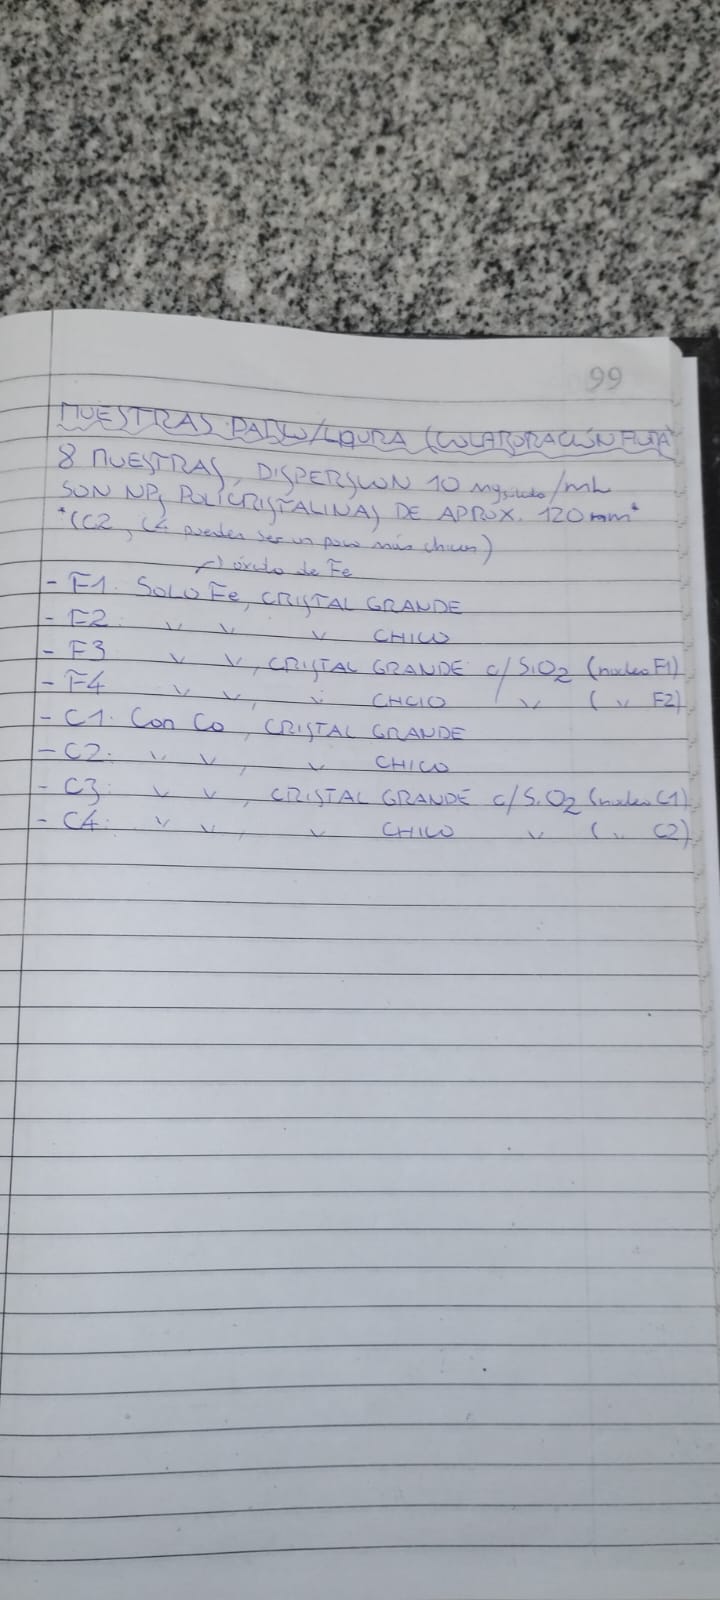 99
MUESTRAS PABLO/LAURA (COLABORACIÓN
8 MUESTRAS, DISPERSION 10 mg sólido/mL
SON NPs POLICRISTALINAS DE APROX. 120 nm*
*(C2, C4 pueden ser un poco más chicos)
↱ óxido de Fe
- F1. SOLO Fe, CRISTAL GRANDE
- F2. " " " CHICO
- F3 " ", CRISTAL GRANDE c/ SiO2 (núcleo F1)
- F4 " ", " CHCIO " ( " F2)
- C1. Con Co, CRISTAL GRANDE
- C2. " ", " CHICO
- C3. " ", CRISTAL GRANDE c/ SiO2 (núcleo C1)
- C4. " ", " CHICO " ( " C2)